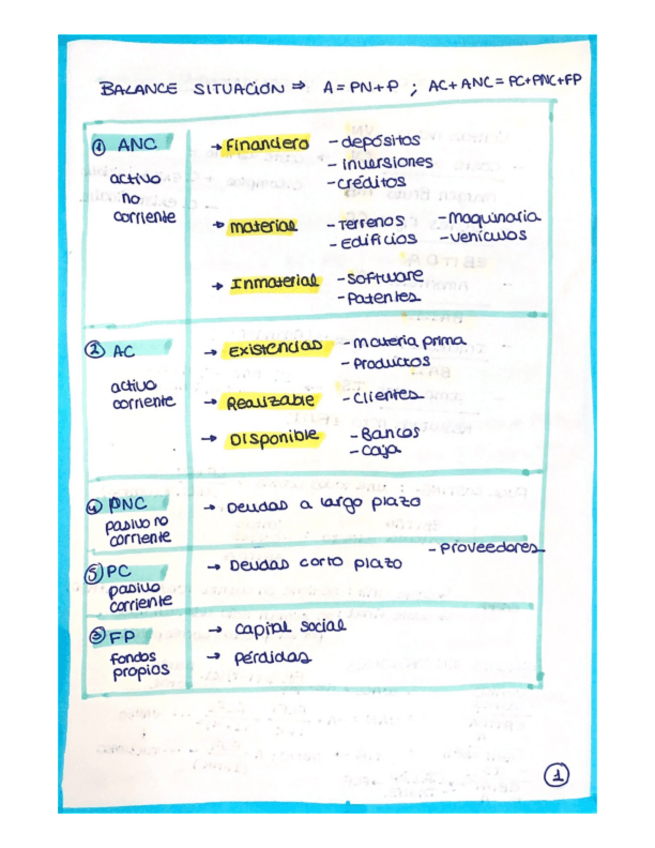 BALANCE SITUACIÓN ⇒ A = PN+P ; AC+ANC = PC+PNC+FP
① ANC
activo
no
corriente
→ Financiero
- depósitos
- inversiones
- créditos
→ material
- Terrenos - maquinaria
- Edificios - vehículos
→ Inmaterial
- Software
- Patentes
② AC
activo
corriente
→ EXistencias
- materia prima
- Productos
→ Realizable
- Clientes
→ Disponible
- Bancos
- caja
④ PNC
pasivo no
corriente
→ Deudas a largo plazo
⑤ PC
pasivo
corriente
→ Deudas corto plazo - proveedores
③ FP
fondos
propios
→ capital social
→ pérdidas
①